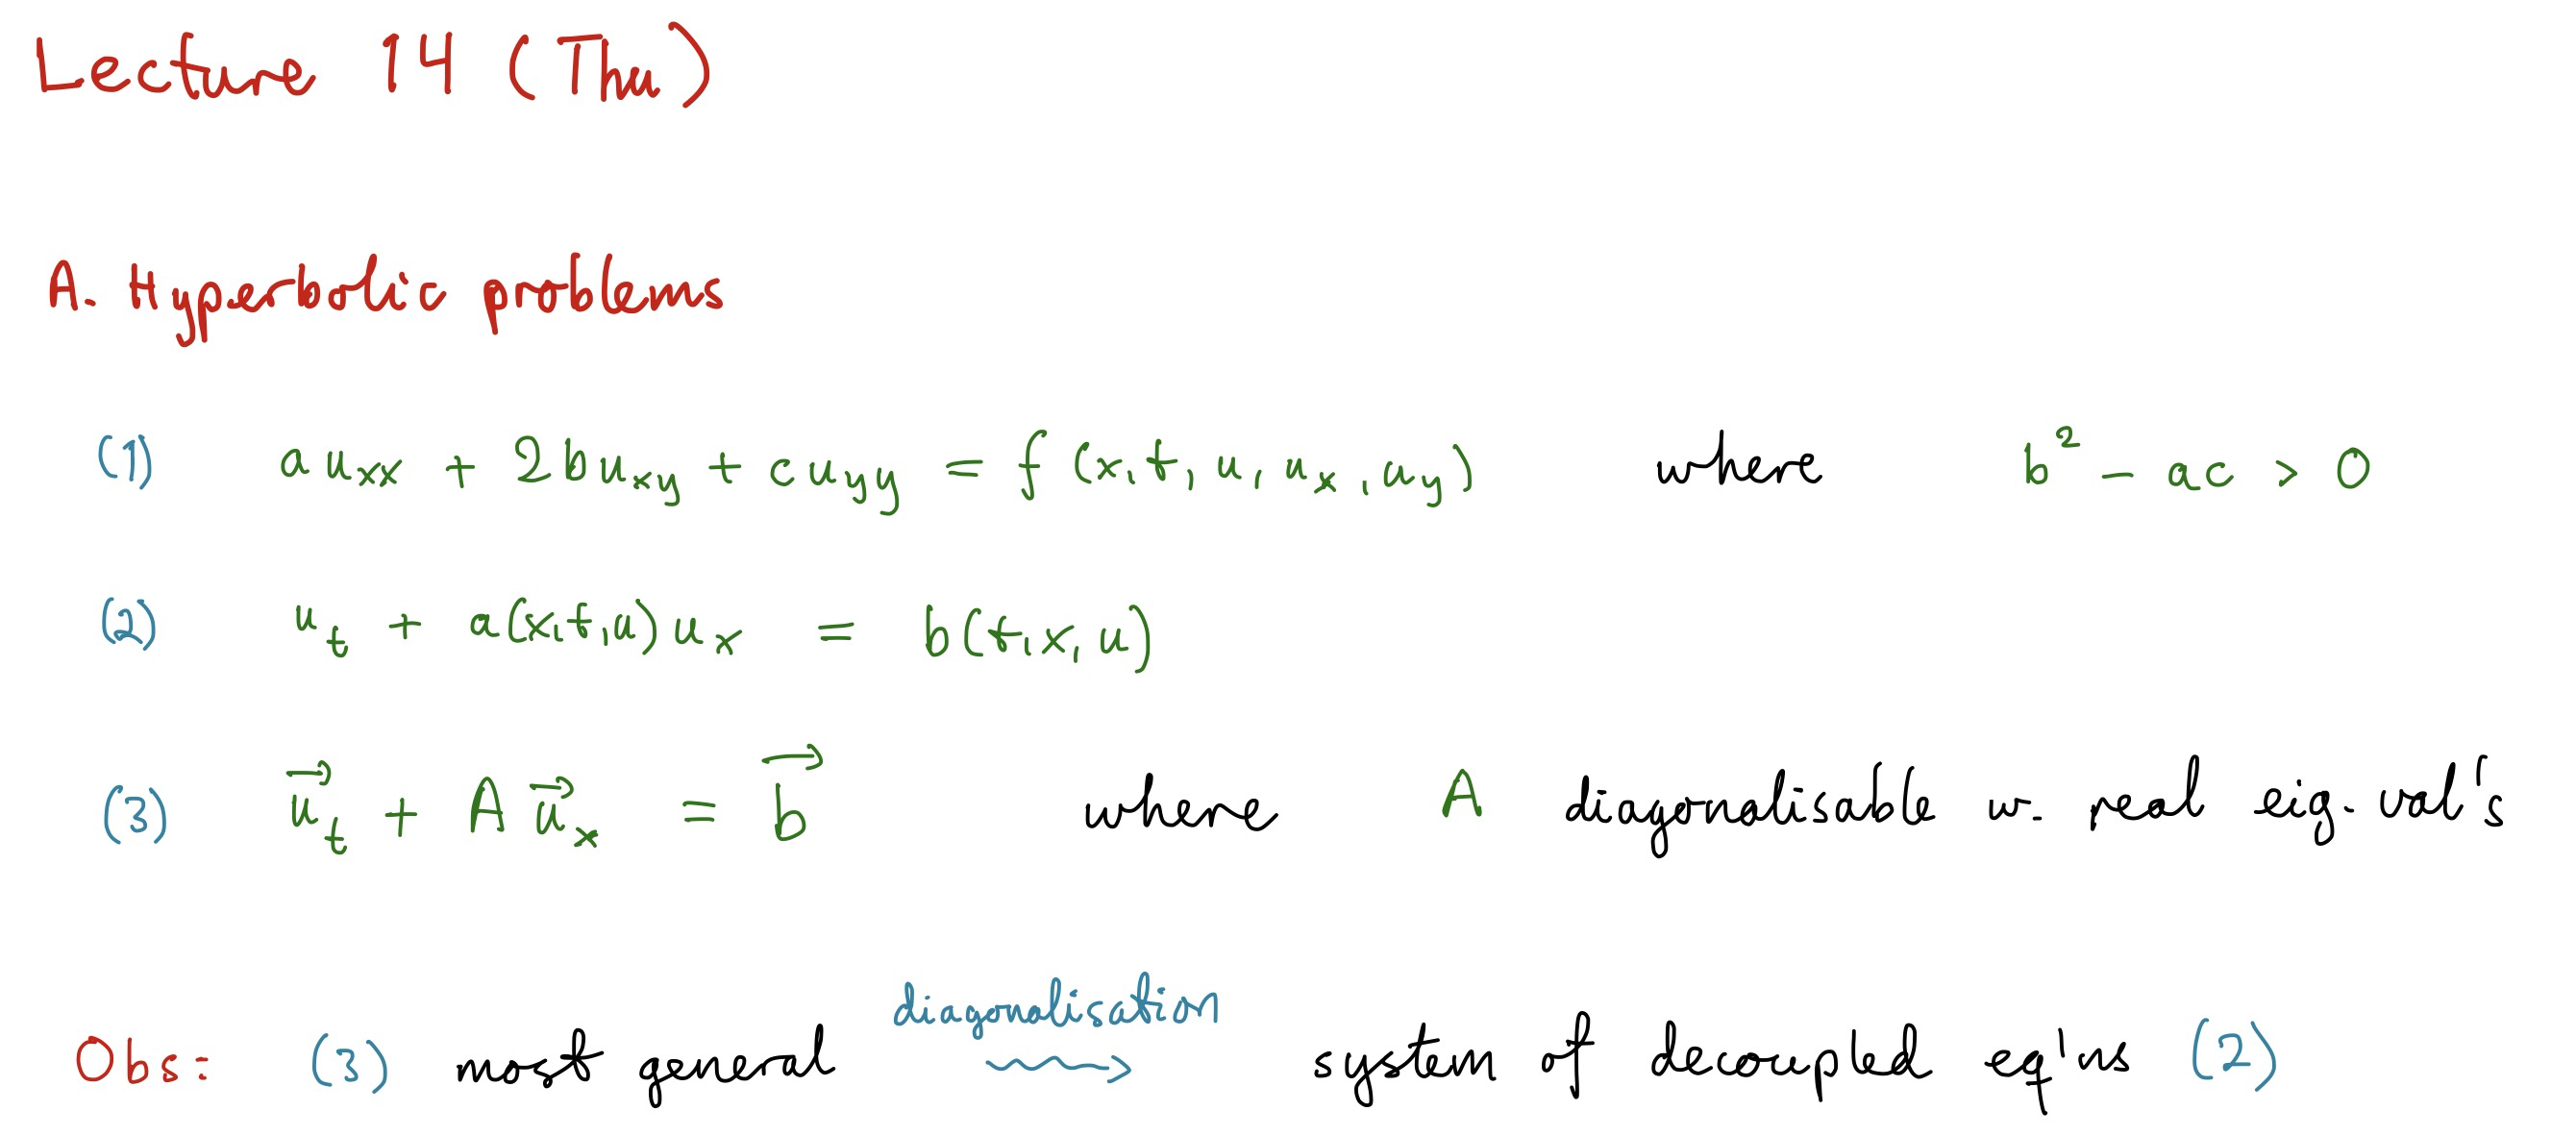 Lecture 14 (Thu)
A. Hyperbolic problems
(1) a u_xx + 2b u_xy + c u_yy = f (x, t, u, u_x, u_y) where b² - ac > 0
(2) u_t + a(x,t,u) u_x = b(t,x,u)
(3) \vec{u}_t + A \vec{u}_x = \vec{b} where A diagonalisable w. real eig. val's
diagonalisation
Obs: (3) most general ⇝ system of decoupled eq'ns (2)